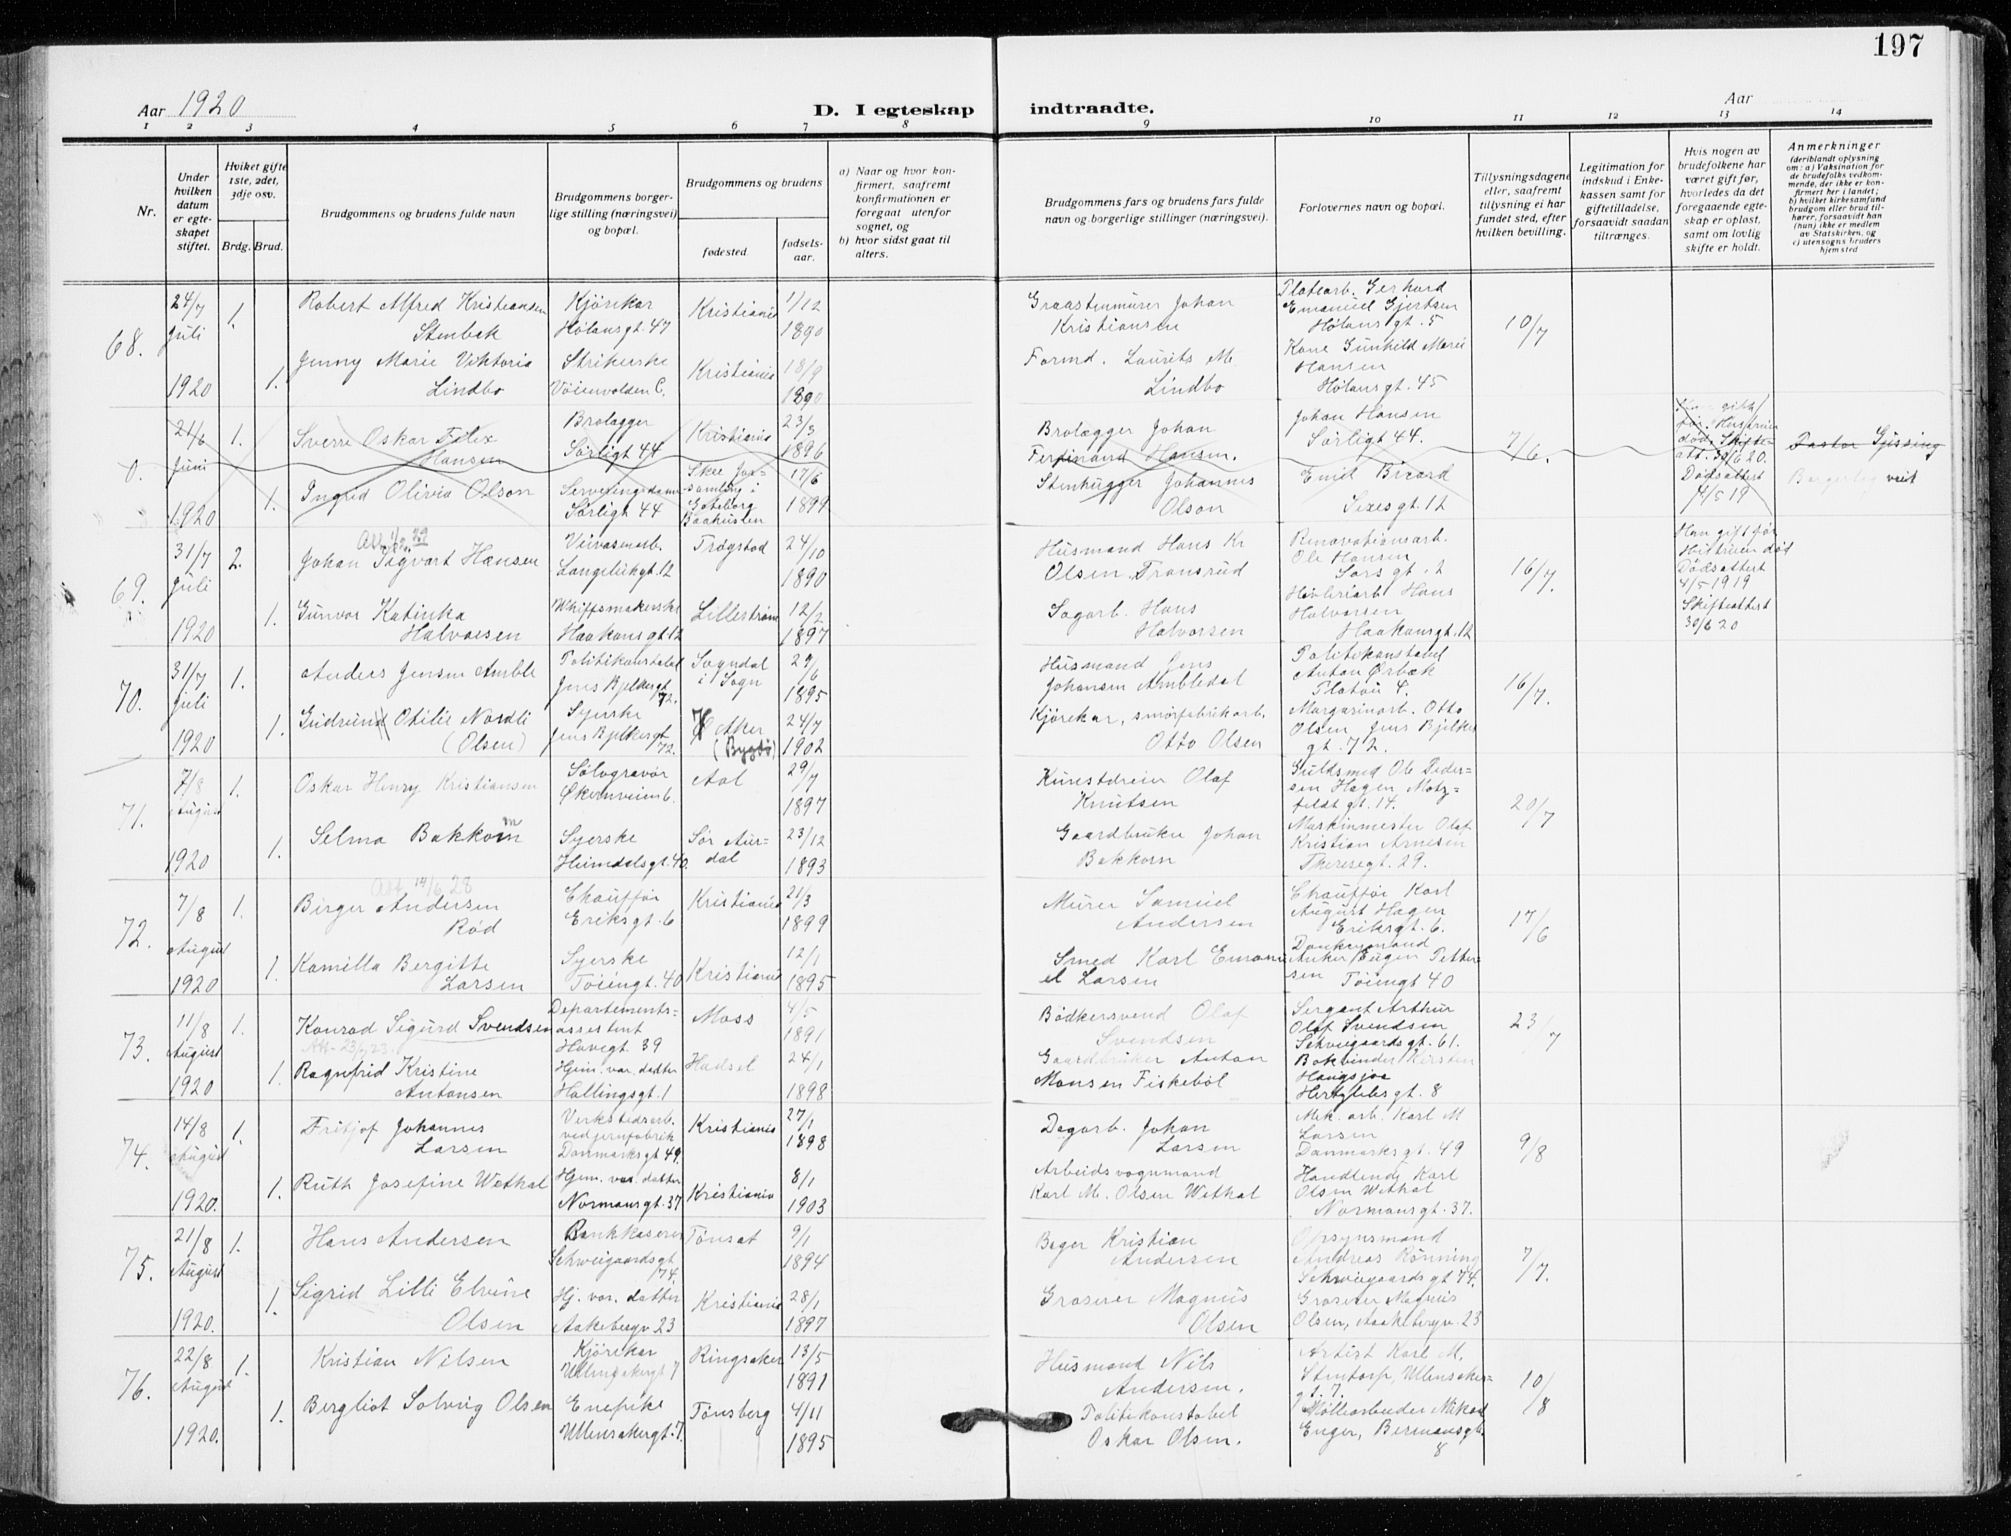 197
Aar 1920
D. I egteskap
indtraadte.
Aar
1 2 3 4 5 6 7 8 9 10 11 12 13 14
Nr.
Under hvilken datum er egteskapet stiftet.
Hvilket gifte 1ste, 2det, 3dje osv.
Brdg. Brud.
Brudgommens og brudens fulde navn
Brudgommens borgerlige stilling (næringsvei) og bopæl.
Brudgommens og brudens
fødested
fødselsaar.
a) Naar og hvor konfirmert, saafremt konfirmationen er foregaat utenfor sognet, og
b) hvor sidst gaat til alters.
Brudgommens fars og brudens fars fulde navn og borgerlige stillinger (næringsvei).
Forlovernes navn og bopæl.
Tillysningsdagene eller, saafremt tillysning ei har fundet sted, efter hvilken bevilling.
Legitimation for indskud i Enkekassen samt for giftetilladelse, forsaavidt saadan tiltrænges.
Hvis nogen av brudefolkene har været gift før, hvorledes da det foregaaende egteskap er opløst, samt om lovlig skifte er holdt.
Anmerkninger
(deriblandt oplysning om: a) Vaksination for de brudefolks vedkommende, der ikke er konfirmert her i landet; b) hvilket kirkesamfund brudgom eller brud tilhører, forsaavidt han (hun) ikke er medlem av Statskirken, og c) utensogns bruders hjemsted
68.
24/7 Juli 1920
1.
Robert Alfred Kristiansen Stenbek
Kjørekar Hølansgt. 47
Kristiania
1/12 1890
Graastenmurer Johan Kristiansen
Platearb. Gerhard Emanuel Gjertsen Hølansgt. 5
10/7
1.
Jenny Marie Viktoria Lindbo
Strikerske Vøienvolden C.
Kristiania
18/9 1890
Formd. Laurits M. Lindbo
Kone Gunhild Marie Hansen Hølansgt. 45
0.
21/6 Juni 1920
1.
Sverre Oskar Felix Hansen
Brolægger Sørligt 44
Kristiania
23/3 1896
Brolægger Johan Ferdinand Hansen.
Johan Hansen Sørligt 44.
7/6.
død. Skifteatt. 30/6 20. Dødsattest 4/5 19
Pastor Gjessing
Borgerlig viet
1.
Ingrid Olivia Olson
Serveringsdame Sørligt 44
Skee i Gøteborg Baahuslen
17/6 1899
Stenhugger Johannes Olson
Emil Bicard Sexesgt. 12
69.
31/7 Juli 1920
2.
Johan Sigvart Hansen
Veivæsenarb. Langeliksgt. 12
Trøgstad
24/10 1890
Husmand Hans Kr Olsen Transrud
Renovationsarb. Ole Hansen Sars gt. 2
16/7.
Han gift før Hustruen død Dødsattest 4/5 1919 Skifteattest 30/6 20
1.
Gunvor Katinka Halvorsen
Whiffsmakerske Haakonsgt. 12
Lillestrøm
12/2 1897
Sagarb. Hans Halvorsen
Høvleriarb Hans Halvorsen Haakonsgt. 12
70.
31/7 Juli 1920
1.
Anders Jensen Amble
Politikonstabel Jens Bjelkesgt 72.
Sogndal i Sogn
29/6 1895
Husmand Jens Johansen Ambledal
Politikonstabel Anton Ørbæk Platou 4.
16/7.
1.
Gudrund Otilie Nordli (Olsen)
Syerske Jens Bjelkesgt 72.
V Aker (Bygdø)
24/7 1902
Kjørekar, smørfabrikarb. Otto Olsen
Margarinarb. Otto Olsen, Jens Bjelkes gt. 72.
71.
7/8 August 1920
1.
Oskar Henry Kristiansen
Sølvgravør Økernveien 6.
Aal
29/7 1897
Kunstdreier Olaf Knutsen
Guldsmed Ole Pedersen Hagen Motzfeldt gt. 14.
20/7
1.
Selma Bakkom
Syerske Heimdalsgt. 40.
Sør Aurdal
23/12 1893
Gaardbruker Johan Bakkom
Maskinmester Olaf Kristian Arnesen Theresegt. 29.
72.
7/8 August 1920
1.
Att. 14/6 28
Birger Andersen Rød
Chauffør Eriksgt. 6
Kristiania
21/3 1899
Murer Samuel Andersen
Chauffør Karl August Hagen Eriksgt. 6.
17/6
1.
Kamilla Bergitte Larsen
Syerske Tøiengt. 40
Kristiania
12/1 1895
Smed Karl Emanuel Larsen
Anker Eugen Pettersen Tøiengt 40
73.
11/8 August 1920
1.
Konrad Sigurd Svendsen
Att. 23/6 23.
Departementsassistent Havegt. 39
Moss
4/5 1891
Bødkersvend Olaf Svendsen
Sergant Arthur Olaf Svendsen Schweigaardsgt. 61.
23/7
1.
Ragnfrid Kristine Antonsen
Hjem. vær. datter Hallingsgt. 1
Hadsel
24/1 1898
Gaardbruker Anton Monsen Fiskebøl
Bokbinder Kirsten Haugsjoa Hertzbergsgt. 8
74.
14/8 August 1920.
1.
Fritjof Johannes Larsen
Verkstedsarb. ved jernfabrik Danmarksgt 49.
Kristiania
27/1 1898
Dagarb. Johan Larsen
Mek. arb. Karl M Larsen Danmarksgt. 49
9/8
1.
Ruth Josefine Wethal
Hjem. vær. datter Normansgt. 37
Kristiania
8/1 1903
Arbeidsvognmand Karl M. Olsen Wethal
Handlende Karl Olsen Wethal Normansgt. 37.
75.
21/8 August 1920.
1.
Hans Andersen
Bankkaserer Schweigaardsgt 74.
Tønset
9/1 1894
Bager Kristian Andersen
Opsynsmand Andreas Rønning Schweigaardsgt 74.
7/7.
1.
Sigrid Lilli Elvine Olsen
Hj. vær. datter Aakebergv 23
Kristiania
28/1 1897
Groserer Magnus Olsen
Groserer Magnus Olsen, Aakebergv. 23
76.
22/8 August 1920.
1.
Kristian Nilsen
Kjørekar Ullensakergt 7
Ringsaker
13/5 1891
Husmand Nils Andersen.
Artist Karl M. Stentorp, Ullensakergt. 7.
10/8
1.
Bergliot Solveig Olsen
Enepike Ullensakergt. 7.
Tønsberg
4/11 1895
Politikonstabel Oskar Olsen.
Møllearbeider Mikael Enger, Bermansgt. 8